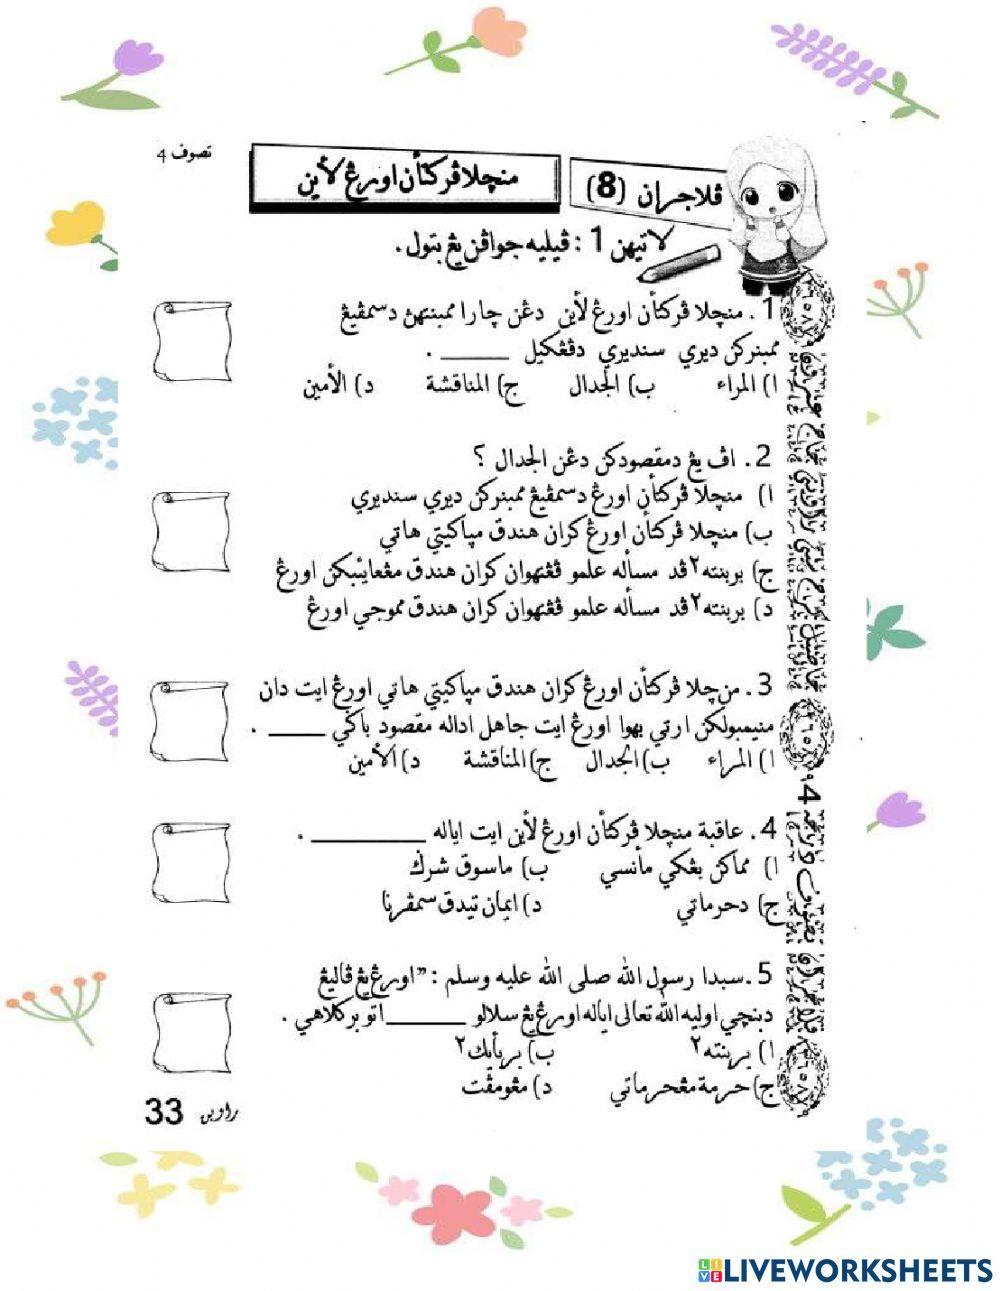 تصوف 4
ڤلاجرن (8)
منچلا ڤركتأن اورڠ لأين
لاتيهن 1 : ڤيليه جواڤن يڠ بتول.
1. منچلا ڤركتأن اورڠ لأين دڠن چارا ممبنتهن دسمڤيڠ
ممبنركن ديري سنديري دڤڠكيل ______ .
ا) المراء ب) الجدال ج) المناقشة د) الأمين
2. اڤ يڠ دمقصودكن دڠن الجدال ؟
ا) منچلا ڤركتأن اورڠ دسمڤيڠ ممبنركن ديري سنديري
ب) منچلا ڤركتأن اورڠ كران هندق مپاكيتي هاتي
ج) بربنته٢ ڤد مسأله علمو ڤڠتهوان كران هندق مڠعايبكن اورڠ
د) بربنته٢ ڤد مسأله علمو ڤڠتهوان كران هندق مموجي اورڠ
3. منچلا ڤركتأن اورڠ كران هندق مپاكيتي هاتي اورڠ ايت دان
منيمبولكن ارتي بهوا اورڠ ايت جاهل اداله مقصود باݢي _____ .
ا) المراء ب) الجدال ج) المناقشة د) الأمين
4. عاقبة منچلا ڤركتأن اورڠ لأين ايت اياله __________ .
ا) مماكن بڠكي مأنسي ب) ماسوق شرك
ج) دحرماتي د) ايمان تيدق سمڤرنا
5. سبدا رسول الله صلى الله عليه وسلم : "اورڠ يڠ ڤاليڠ
دبنچي اوليه الله تعالى اياله اورڠ يڠ سلالو _______ اتو بركلاهي .
ا) بربنته٢ ب) بربأيك٢
ج) حرمة مڠحرماتي د) مڠومڤت
راوين 33
LIVEWORKSHEETS